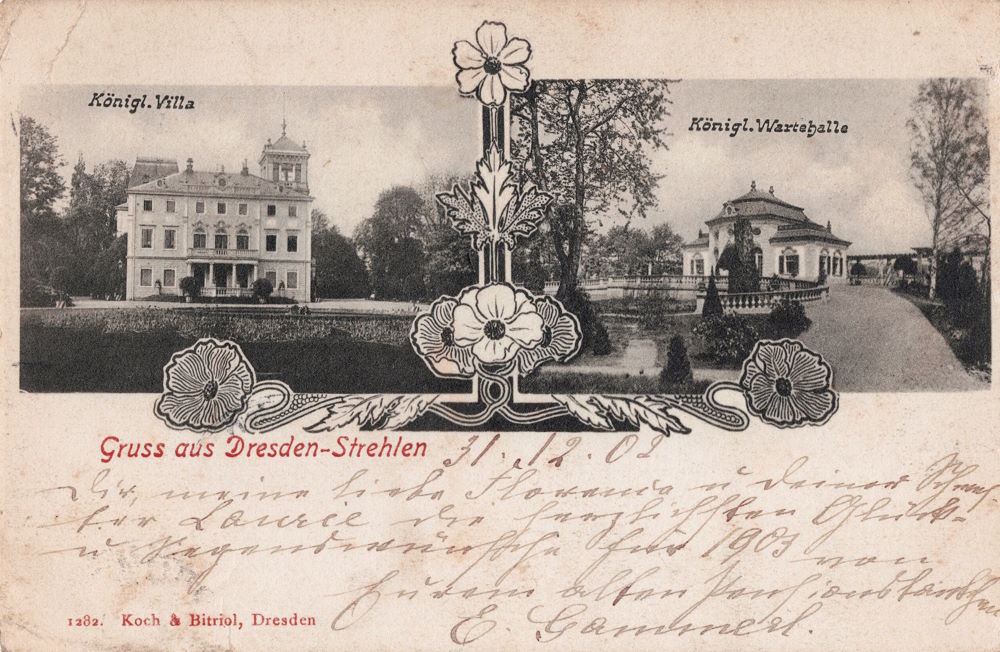 Königl. Villa
Königl. Wartehalle
Gruss aus Dresden-Strehlen
31. 12. 02
Dir, meine liebe Florence u deiner Schwes-
ter Laurie die herzlichsten Glück-
u Segenswünsche für 1903 von
Eurem alten
E. Gammerl.
1282. Koch & Bitriol, Dresden